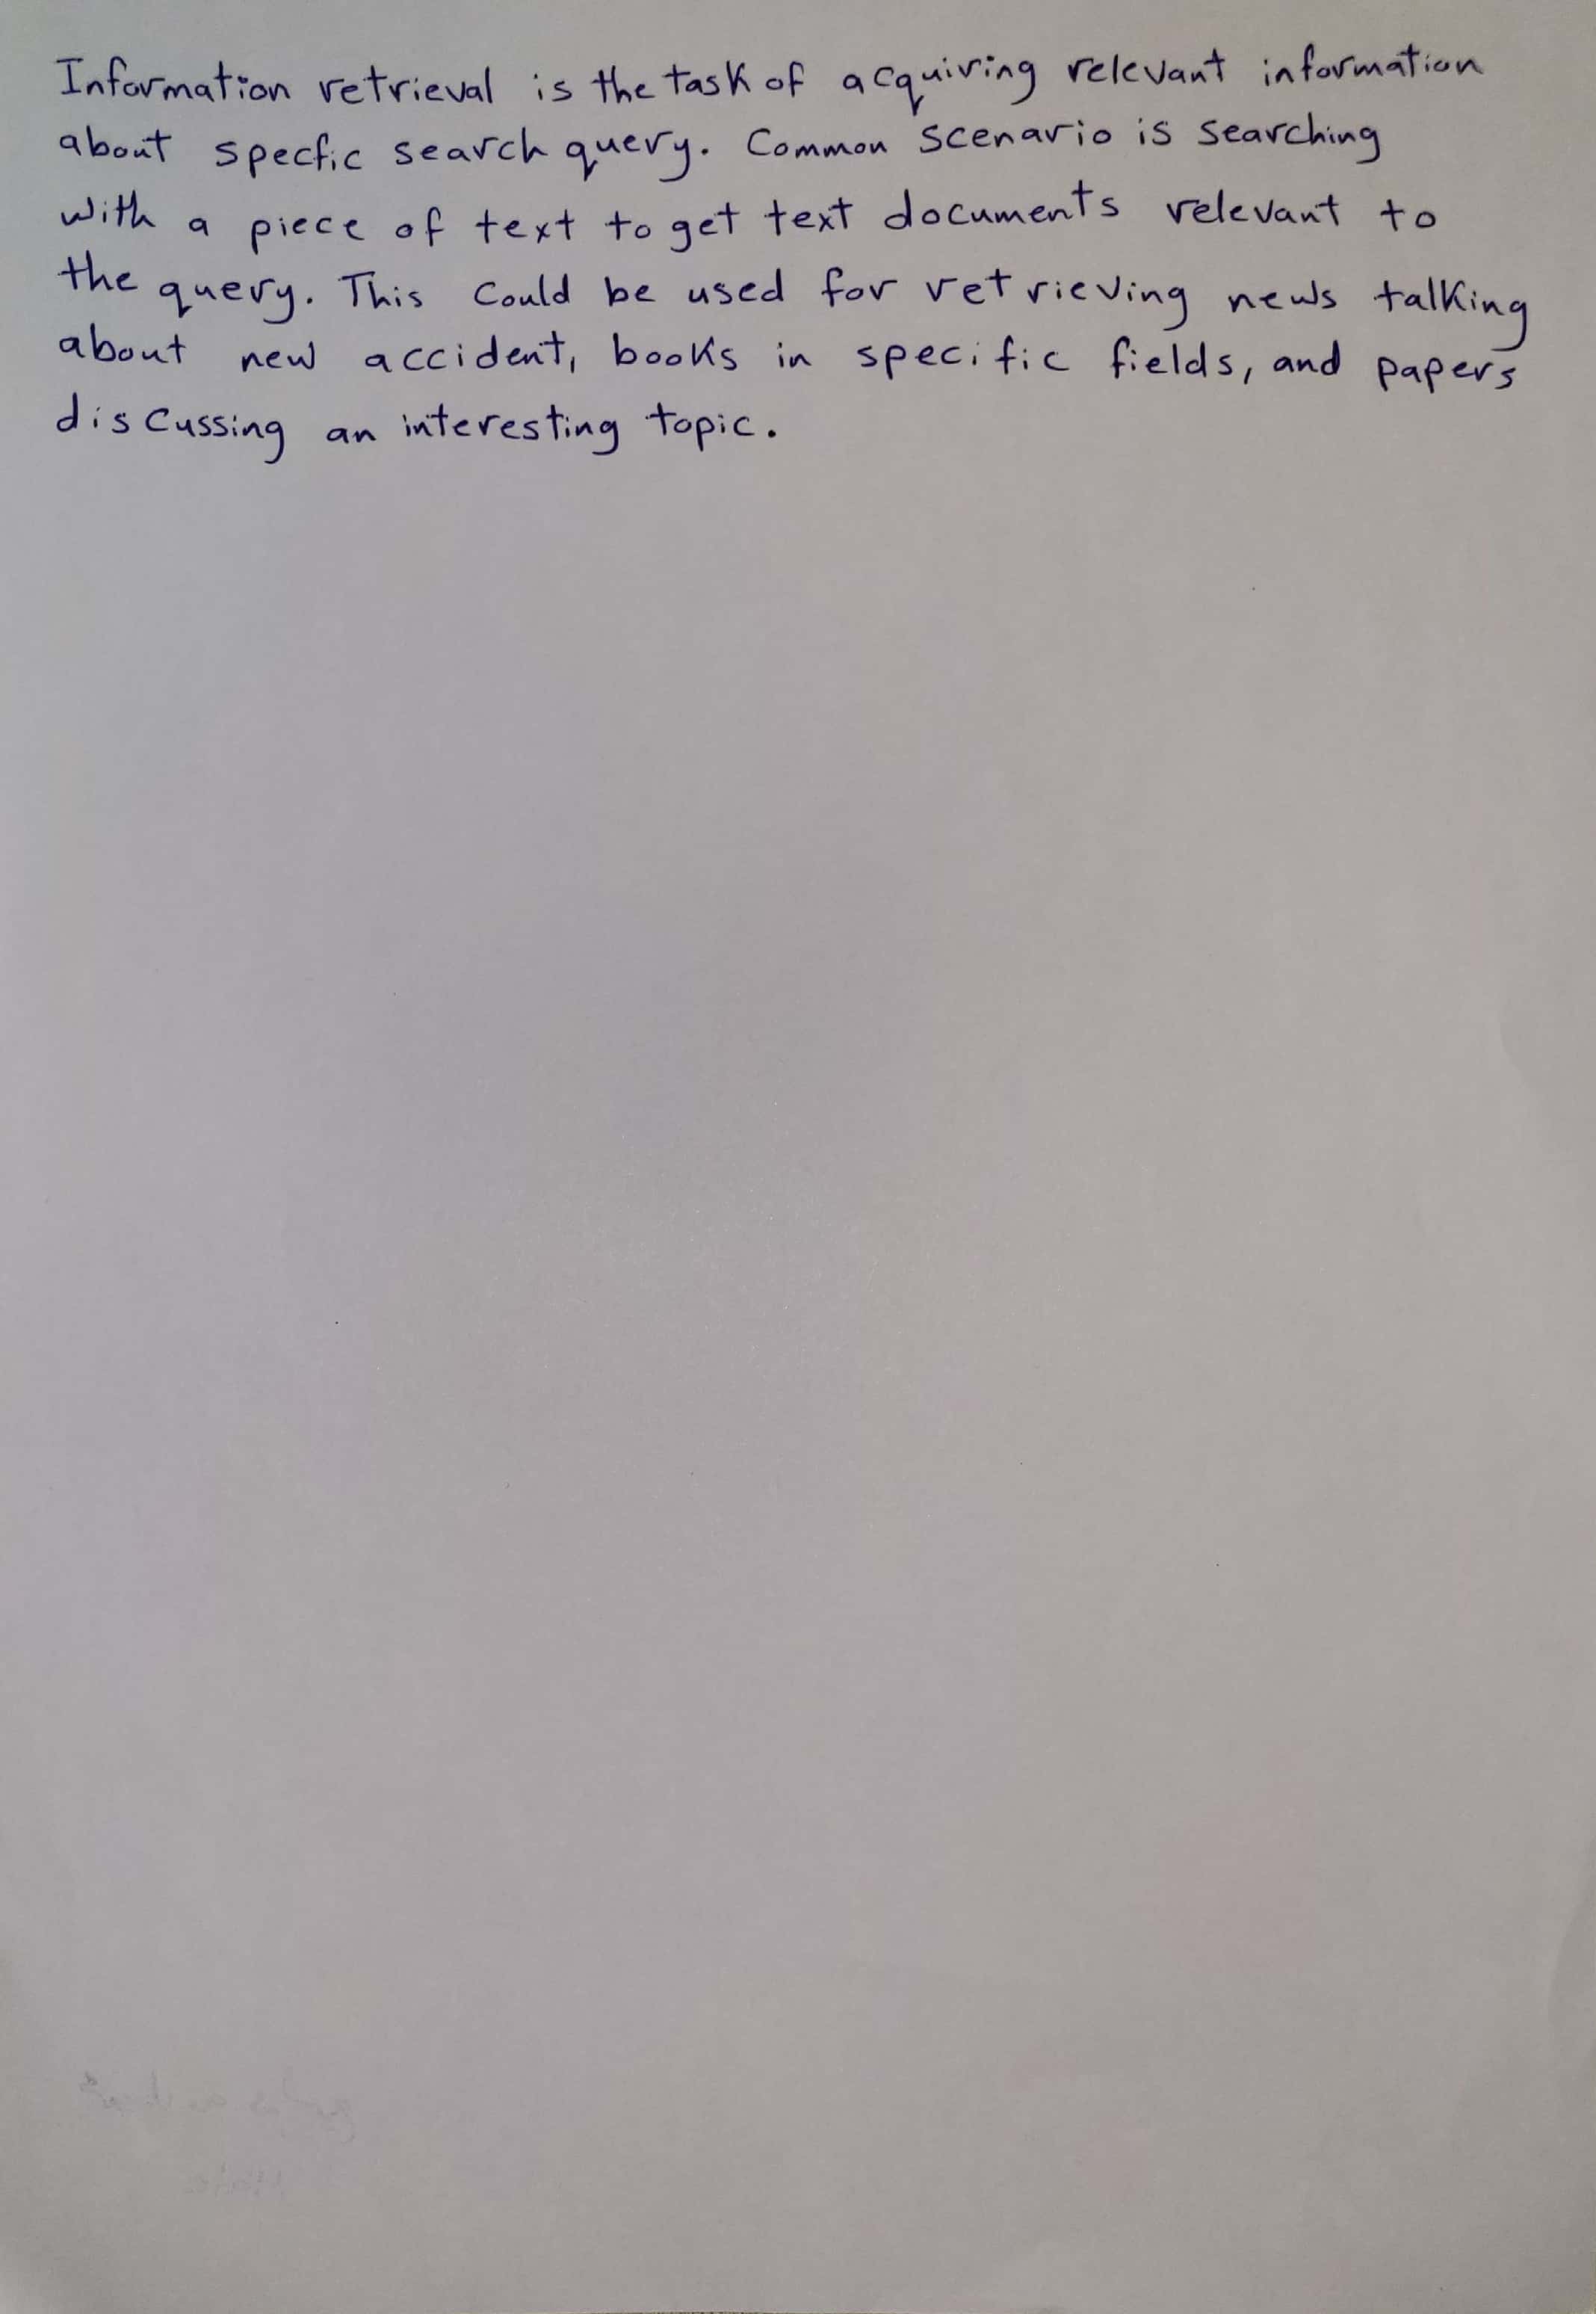 Information retrieval is the task of acquiring relevant information
about specfic search query. Common scenario is searching
with a piece of text to get text documents relevant to
the query. This could be used for retrieving news talking
about new accident, books in specific fields, and papers
discussing an interesting topic.